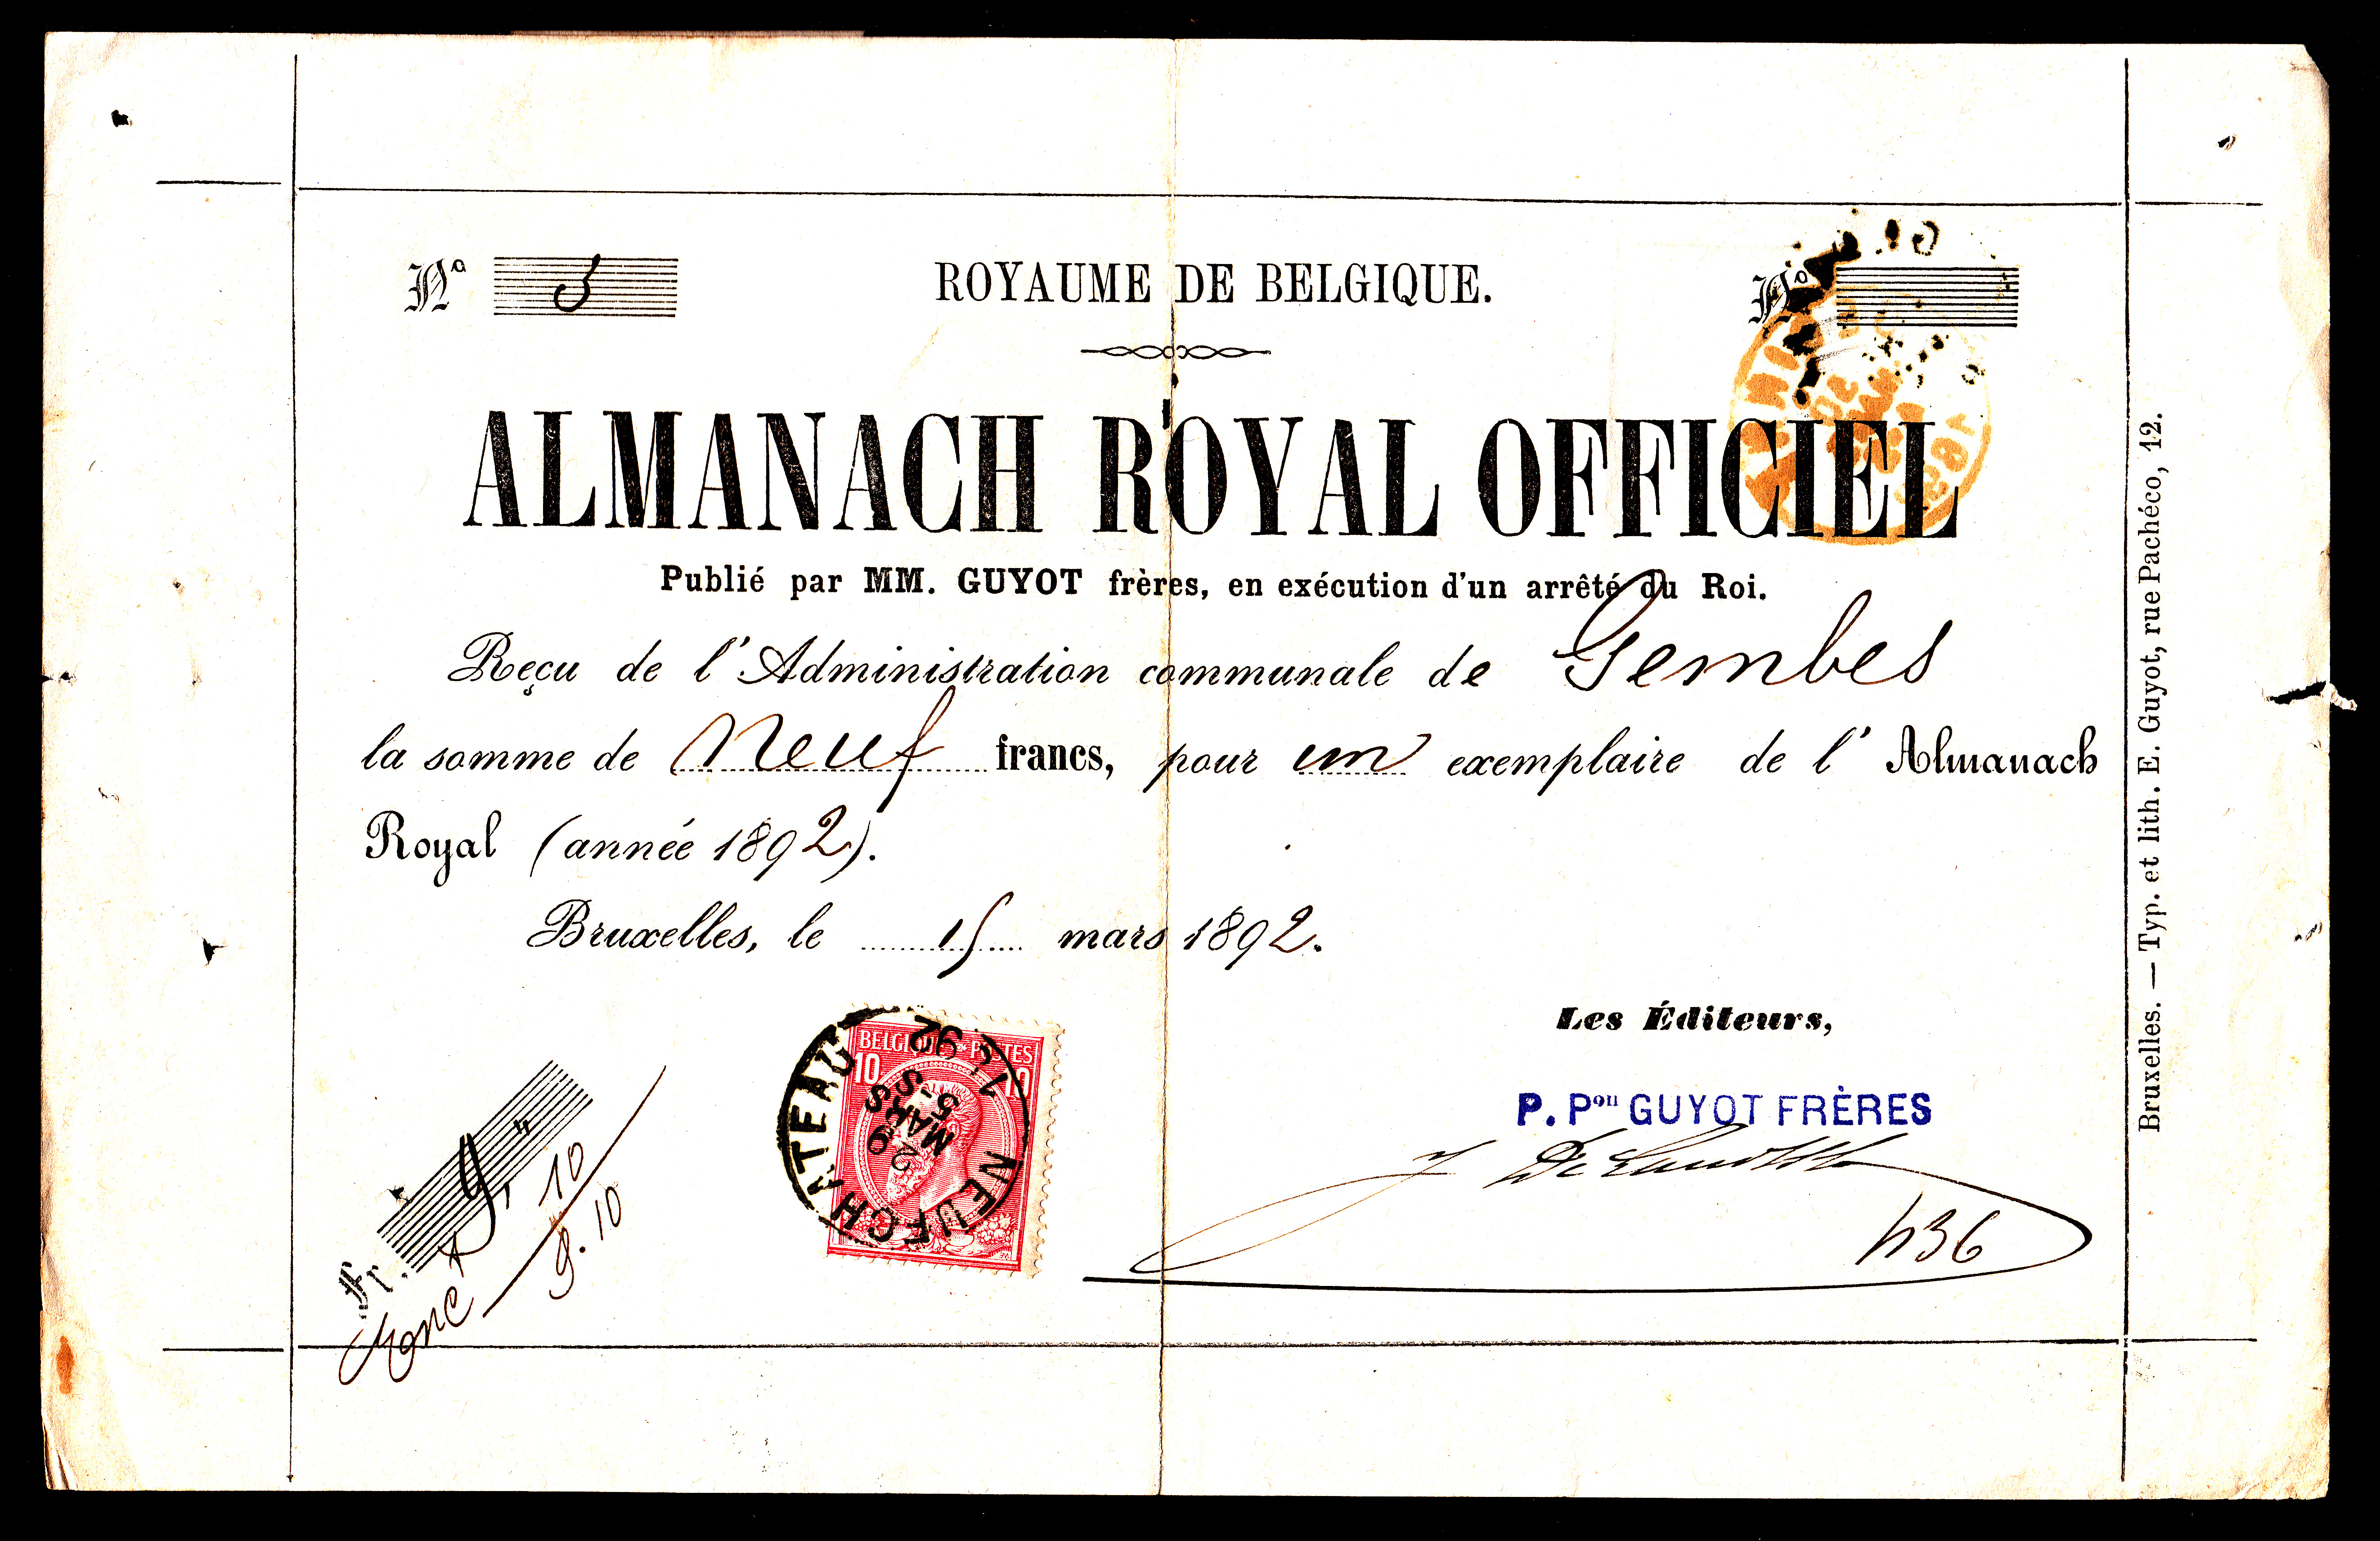 Nº 5
ROYAUME DE BELGIQUE.
Nº
ALMANACH ROYAL OFFICIEL
Publié par MM. GUYOT frères, en exécution d'un arrêté du Roi.
Reçu de l'Administration communale de Gembes
la somme de Neuf francs, pour un exemplaire de l'Almanach
Royal (année 1892).
Bruxelles, le 15 mars 1892.
Les Éditeurs,
P. Pᵒⁿ GUYOT FRÈRES
436
BELGIQUE POSTES
10 10
NEUFCHATEAU
9 MARS
5-S
92
Fr. 9,"
10
9.10
Bruxelles. — Typ. et lith. E. Guyot, rue Pachéco, 12.